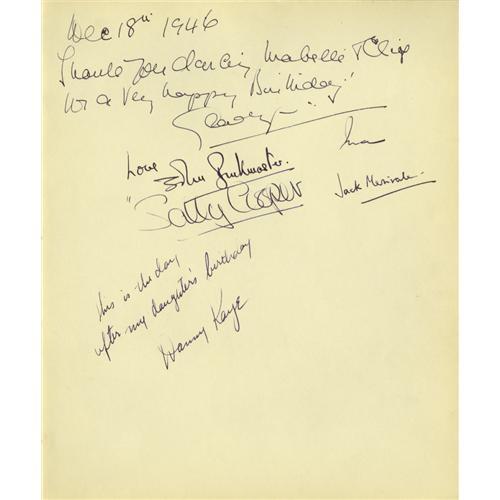 Dec 18th 1946
Thank you darling Mabelle & Clif
for a very happy Birthday!
Gladys.
Love
John Buckmaster.
"Sally Cooper
Jack Merivale.
this is the day
after my daughter's birthday
Danny Kaye